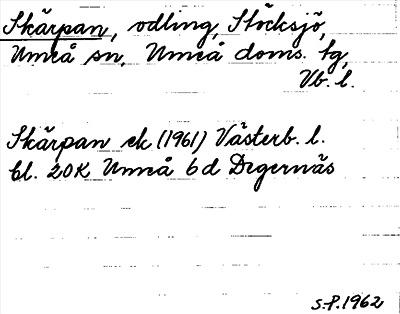 Skärpan, odling, Stöcksjö,
Umeå sn, Umeå doms. tg,
Vb. l.
Skärpan ek (1961) Västerb. l.
bl. 20K Umeå 6d Degernäs
S.P. 1962